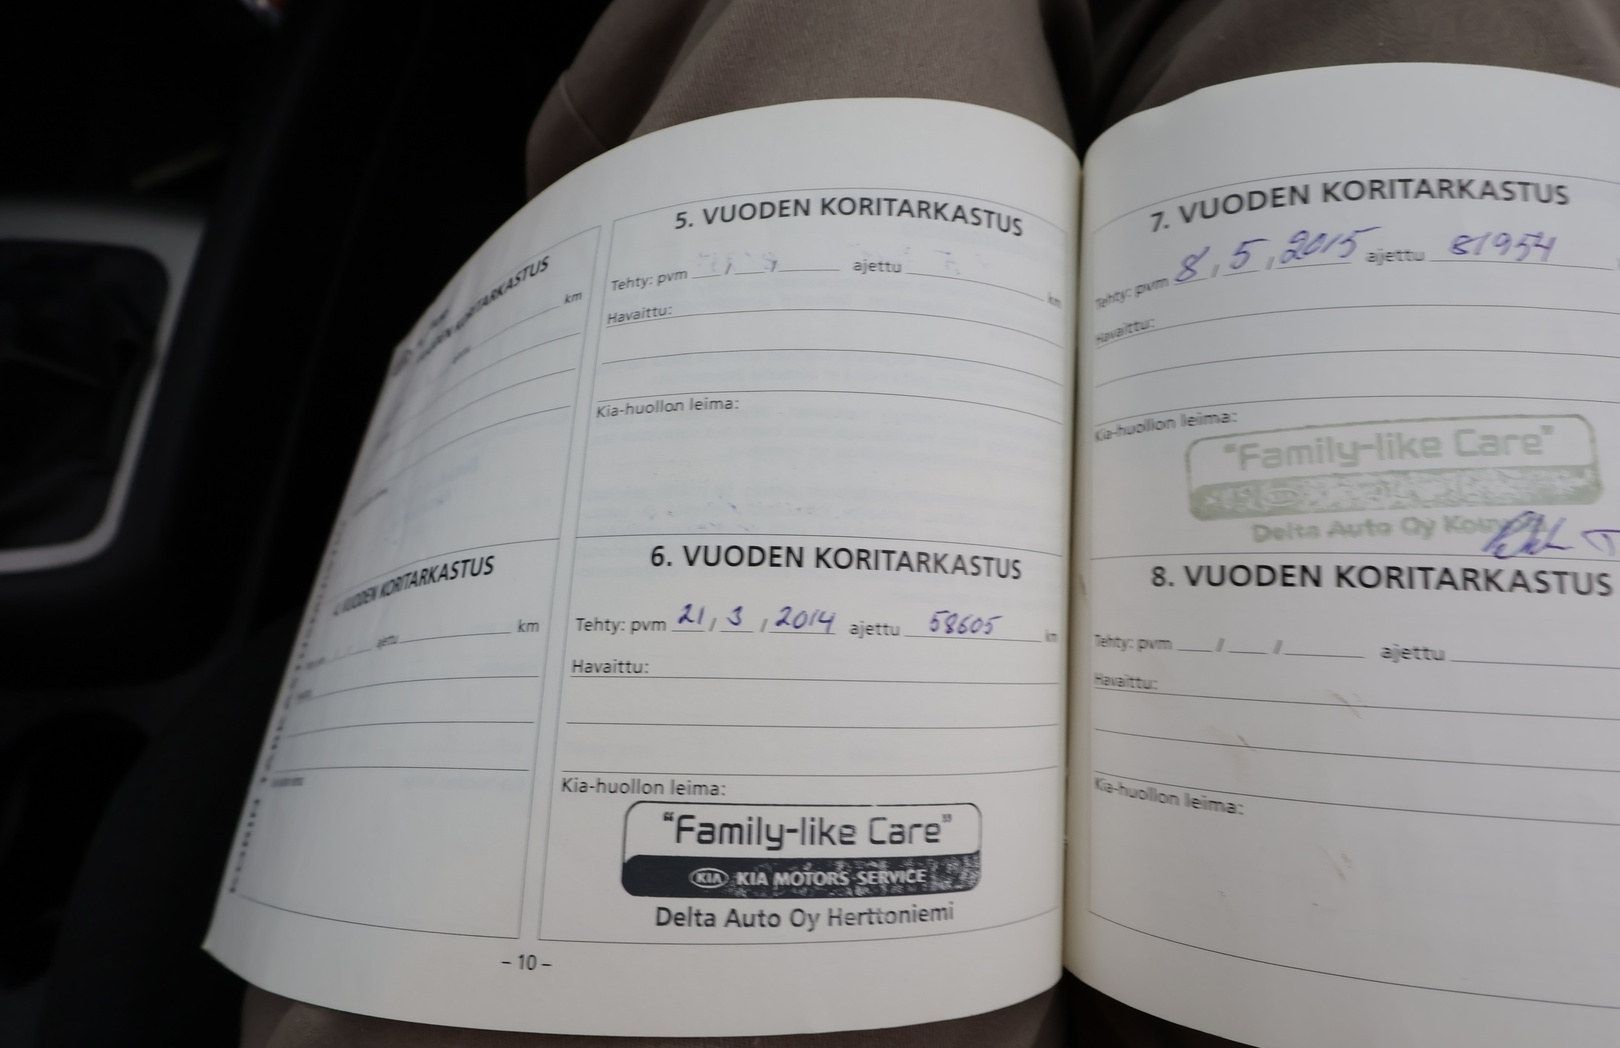 KORITARKASTUS
km
4. VUODEN KORITARKASTUS
ajettu km
5. VUODEN KORITARKASTUS
Tehty: pvm ___/___/______ ajettu ____________ km
Havaittu:
Kia-huollon leima:
6. VUODEN KORITARKASTUS
Tehty: pvm 21 / 3 / 2014 ajettu 58605 km
Havaittu:
Kia-huollon leima:
"Family-like Care"
KIA KIA MOTORS SERVICE
Delta Auto Oy Herttoniemi
– 10 –
7. VUODEN KORITARKASTUS
Tehty: pvm 8 / 5 / 2015 ajettu 81954
Havaittu:
Kia-huollon leima:
"Family-like Care"
Delta Auto Oy
8. VUODEN KORITARKASTUS
Tehty: pvm ___/___/______ ajettu ____________
Havaittu:
Kia-huollon leima: